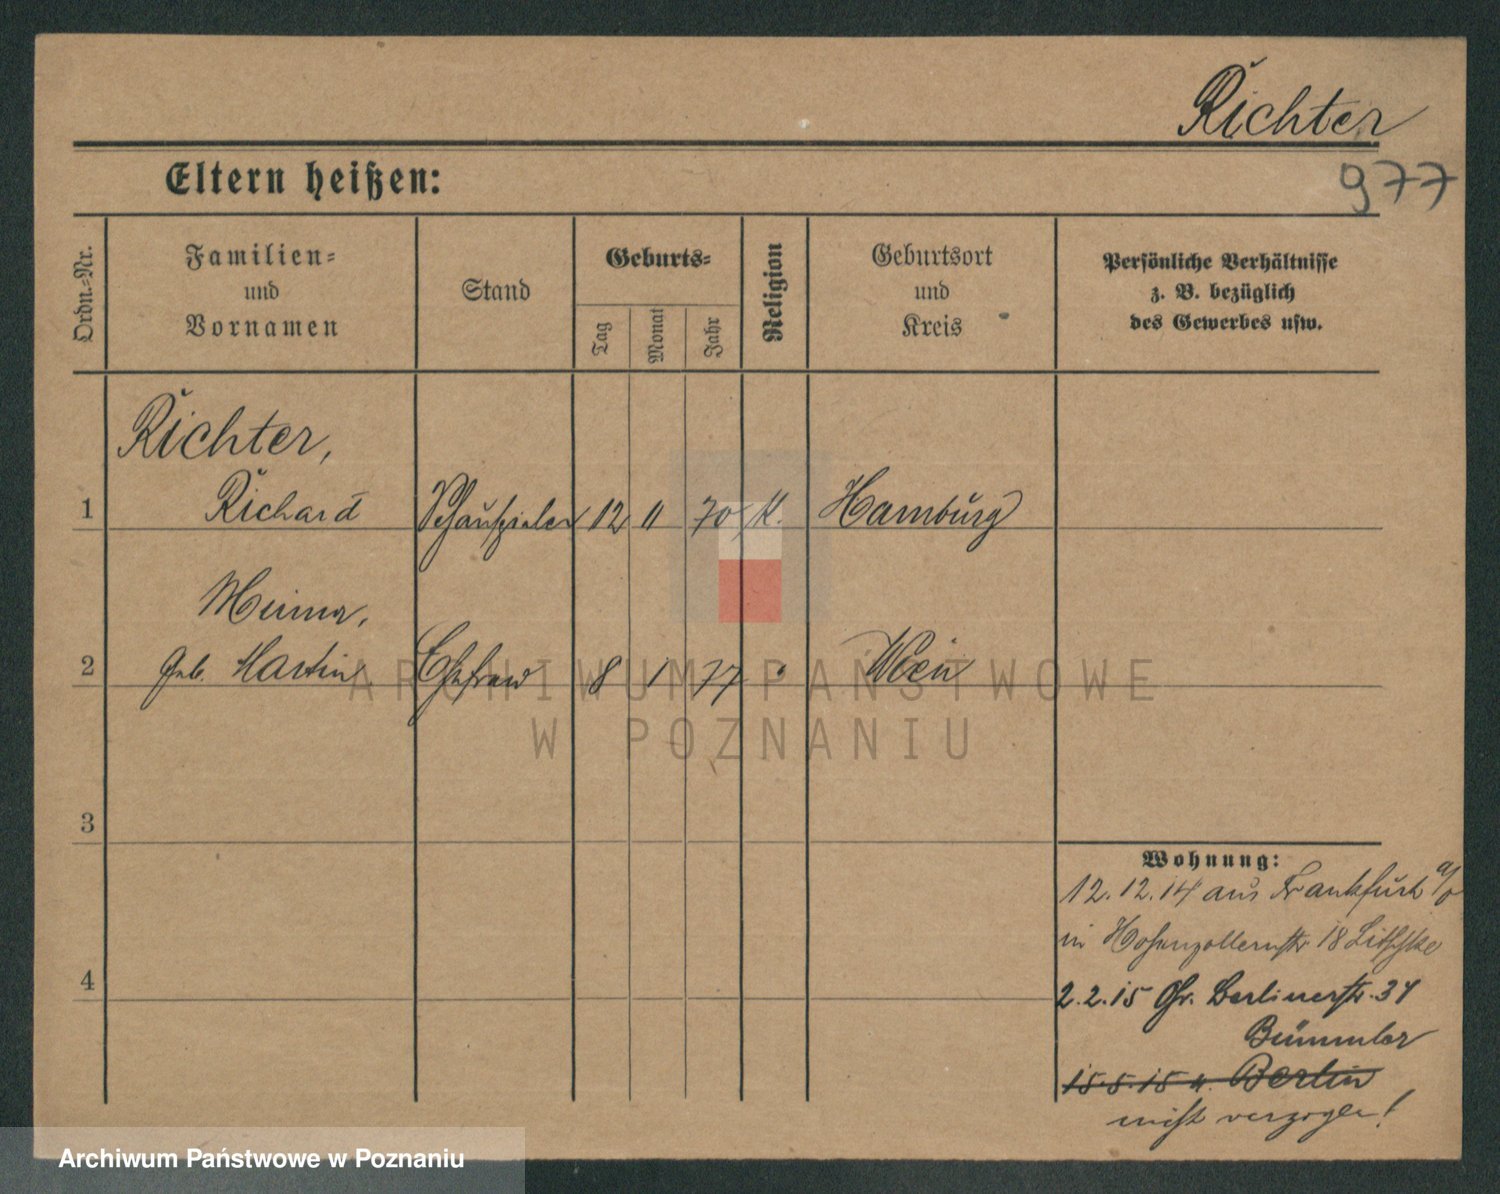 Richter
977
Eltern heißen:
Ordn.-Nr.
Familien-
und
Vornamen
Stand
Geburts-
Tag
Monat
Jahr
Religion
Geburtsort
und
Kreis
Persönliche Verhältnisse
z. B. bezüglich
des Gewerbes usw.
Richter,
1 Richard Schauspieler 12 11 70 K. Hamburg
2 geb. Martin Ehefrau 8 1 77 " Wien
3
4
Wohnung:
12.12.14 aus Frankfurt a/O
in Hohenzollernstr. 18
2.2.15 Gr. Berlinerstr. 31
Bümmler
15.5.15 n. Berlin
nicht verzogen!
ARCHIWUM PAŃSTWOWE
W POZNANIU
Archiwum Państwowe w Poznaniu